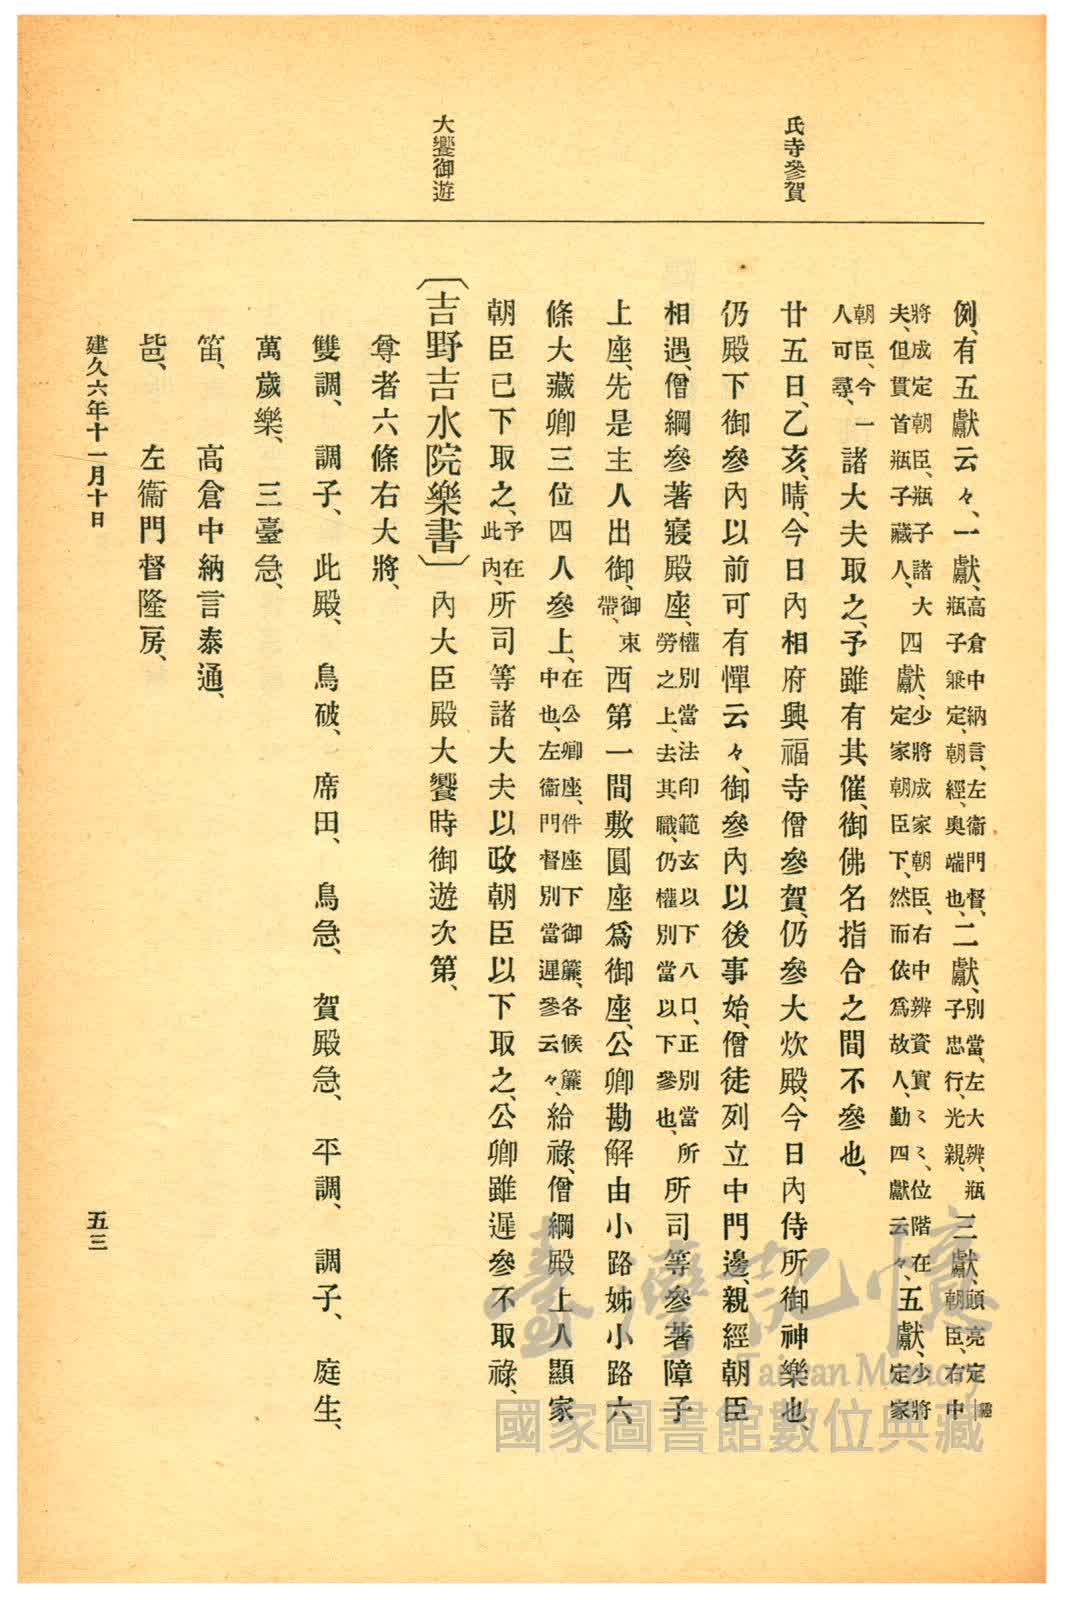 氏寺參賀
大饗御遊
例、有五獻云々、一獻、高倉中納言、左衞門督、瓶子兼定、朝經、奧端也、二獻、別當、左大辨、瓶子忠行、光親、三獻、頭亮定朝臣、右中
將成定朝臣、瓶子諸大夫、但貫首瓶子藏人、四獻、少將成家朝臣、右中辨資實〻〻、位階在定家朝臣下、然而依爲故人、勤四獻云々、五獻、少將定家
朝臣、今一人可尋、諸大夫取之、予雖有其催、御佛名指合之間不參也、
廿五日、乙亥、晴、今日內相府興福寺僧參賀、仍參大炊殿、今日內侍所御神樂也、
仍殿下御參內以前可有憚云々、御參內以後事始、僧徒列立中門邊、親經朝臣
相遇、僧綱參著寢殿座、權別當法印範玄以下八口、正別當所勞之上、去其職、仍權別當以下參也、所司等參著障子
上座、先是主人出御、御束帶、西第一間敷圓座爲御座、公卿勘解由小路姊小路六
條大藏卿三位四人參上、在公卿座、件座下御簾、各候簾中也、左衞門督別當遲參云々、給祿、僧綱殿上人顯家
朝臣已下取之、予在此內、所司等諸大夫以政朝臣以下取之、公卿雖遲參不取祿、
〔吉野吉水院樂書〕內大臣殿大饗時御遊次第、
尊者六條右大將、
雙調、調子、此殿、鳥破、席田、鳥急、賀殿急、平調、調子、庭生、
萬歲樂、三臺急、
笛、高倉中納言泰通、
笆、左衞門督隆房、
建久六年十一月十日
五三
臺灣記憶
Taiwan Memory
國家圖書館數位典藏